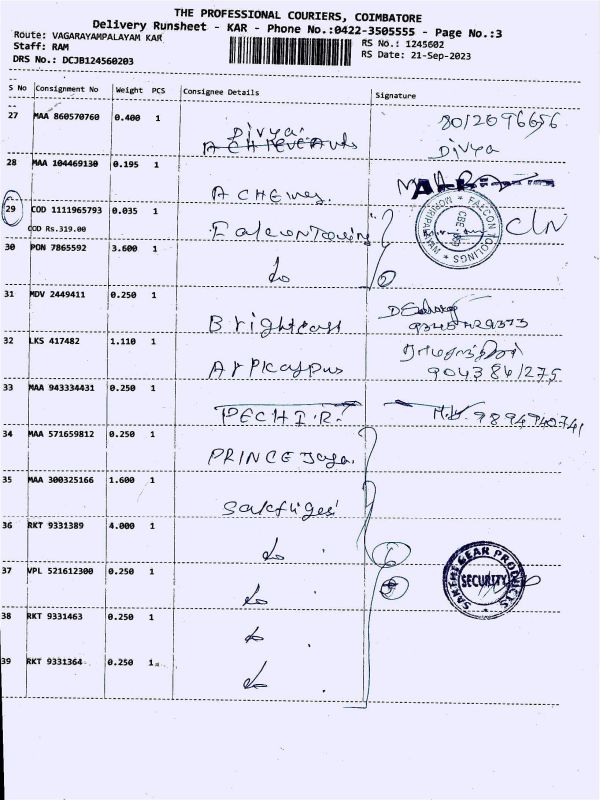 THE PROFESSIONAL COURIERS, COIMBATORE
Delivery Runsheet - KAR - Phone No.:0422-3505555 - Page No.:3
Route: VAGARAYAMPALAYAM KAR
RS No.: 1245602
Staff: RAM
RS Date: 21-Sep-2023
DRS No.: DCJB124560203
S No Consignment No Weight PCS Consignee Details Signature
27 MAA 860570760 0.400 1 Divya 8012696656
Divya
28 MAA 104469130 0.195 1
29 COD 1111965793 0.035 1 CLN
COD Rs.319.00
FALCON TOOLINGS
30 PON 7865592 3.600 1 do
31 MDV 2449411 0.250 1
32 LKS 417482 1.110 1
33 MAA 943334431 0.250 1 PECHI.R. 9894940741
34 MAA 571659812 0.250 1 PRINCE Jaya
35 MAA 300325166 1.600 1
36 RKT 9331389 4.000 1 do 6
37 VPL 521612300 0.250 1 do
SAKTHI GEAR PRODUCTS
SECURITY
38 RKT 9331463 0.250 1 do
39 RKT 9331364 0.250 1 do